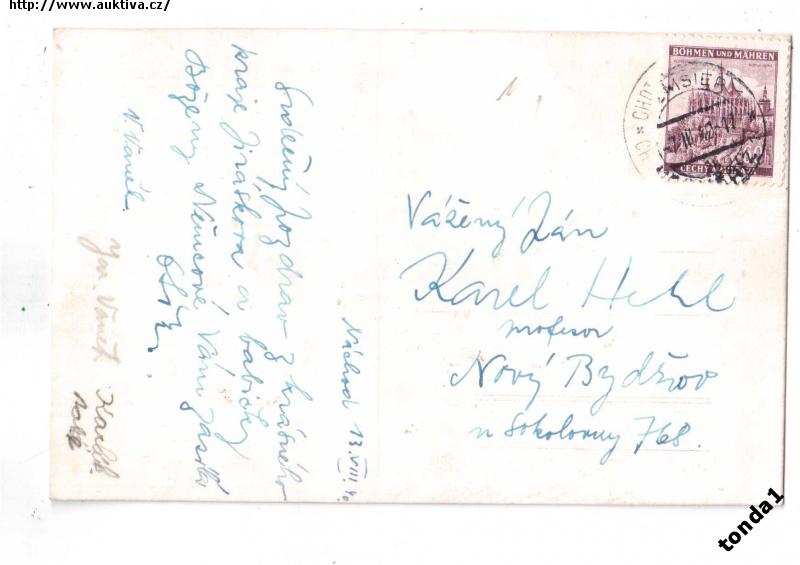 http://www.auktiva.cz/
BÖHMEN UND MÄHREN
ČECHY A MORAVA
Srdečný pozdrav z krásného
kraje Jiráskova a babičky
Boženy Němcové Vám zasílá
V. Vaněk.
Jan Vaněk
Náchod 13.VIII.40
Vážený Pán
Karel Hekl
profesor
Nový Bydžov
u Sokolovny 768.
tonda1